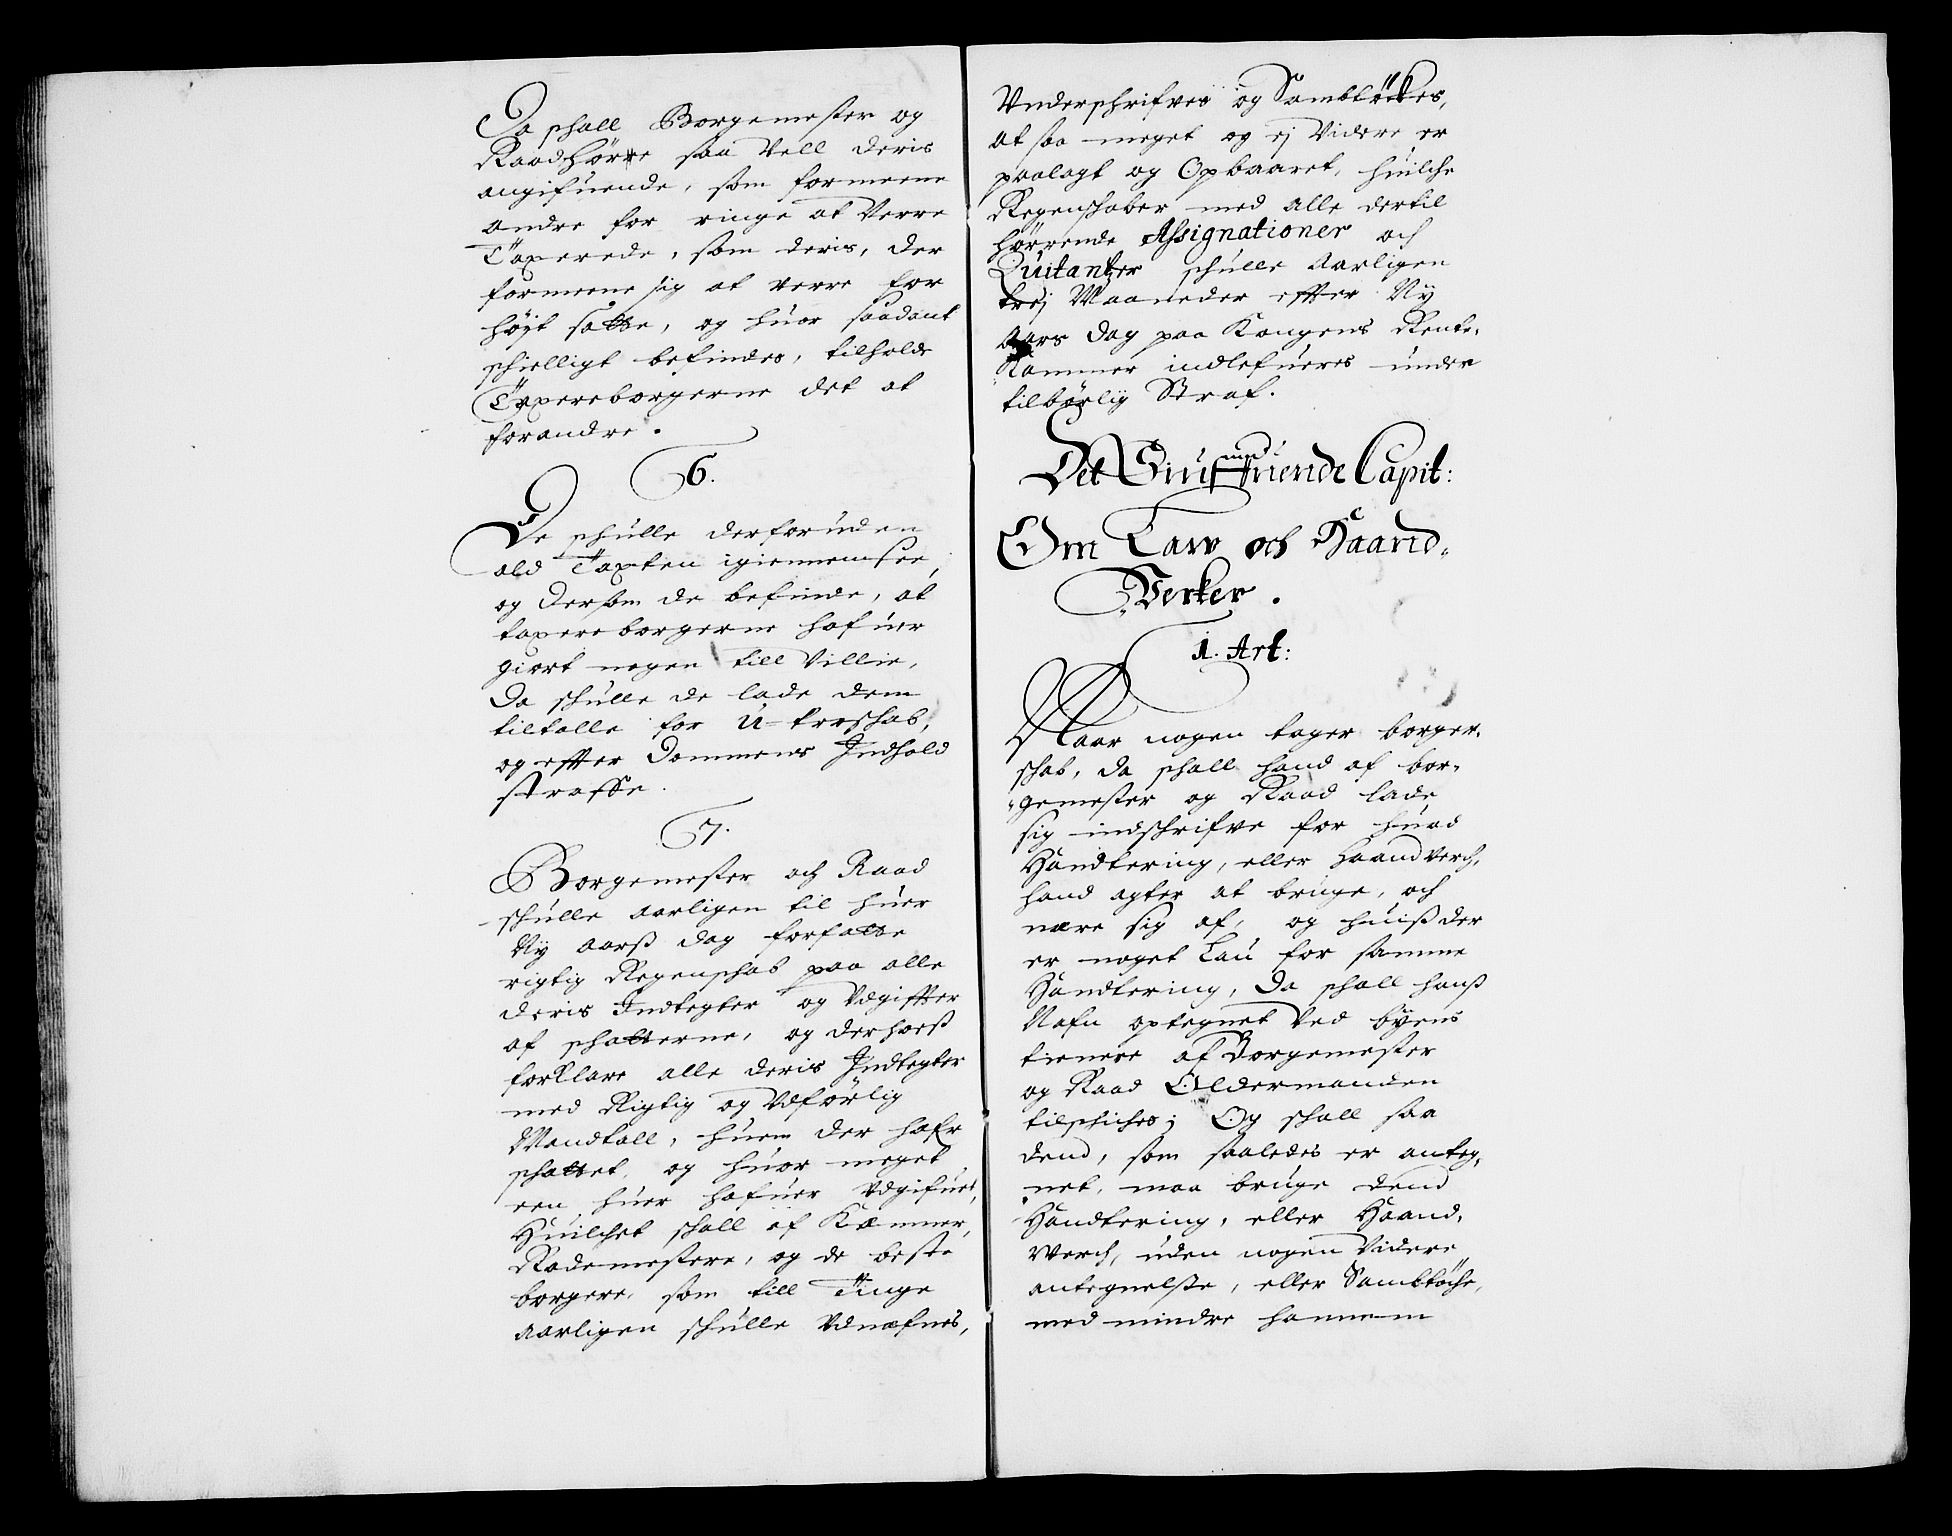 Da schall Borgemester og
Raad höre saa vell deris
angifuende, som formeene
andre for ringe at Verre
Taxerede, som deris, der
formeene sig at verre for
højt satte, og huor saadant
schielligt befindes, tilholde
Taxereborgerne det at
forandre.
6.
De schulle derforuden
ald Taxten igiennemsee,
og dersom de befinde, at
taxereborgerne hafuer
giort nogen till Villie,
Da schulle de lade dem
tiltalle for U-troschab,
og effter Dommens Indhold
straffe.
7.
Borgemester och Raad
schulle aarligen til huer
Ny aarß dag forfatte
rigtig Regenschab paa alle
deris Indtegter og Udgiffter
af schatterne, og derhoeß
forklare alle deris Indtegter
med Rigtig og Udförlig
Mandtall, huem der hafr
schattet, og huor meget
een huer hafuer Udgifuet,
Huilchet schall af Kæmner,
Rodemestere, og de beste
borgere, som till Tinge
aarligen schulle Udnæfnes,
Underschrifves og Sambtöckes,
at saa meget og ej Videre er
paalagt og Opbaaret, huilche
Regenschaber med alle dertil
hörrende Assignationer och
Quitantzer schulle Aarligen
trej Maaneder effter Ny
Aars dag paa Kongens Rente-
Kammer indlefueres under
tilbörlig Straf.
Det Siuffuende Capit:
Om Law och Haand-
Verker.
1. Art:
Naar nogen tager borger-
schab, da schall hand af bor-
gemester og Raad lade
sig indschrifve for huad
Handtering, eller Haandverch,
hand agter at bruge, och
nære sig af, og huiß der
er noget Lau for samme
Handtering, Da schall hanß
Nafn optegnet ved byens
tienere af Borgemester
og Raad Oldermanden
tilschiches; Og schall saa
dend, som saaledes er anteg-
net, maa bruge dend
Handtering, eller Haand-
Werch, uden nogen Videre
antegnelse, eller Sambtöche,
med mindre hannem